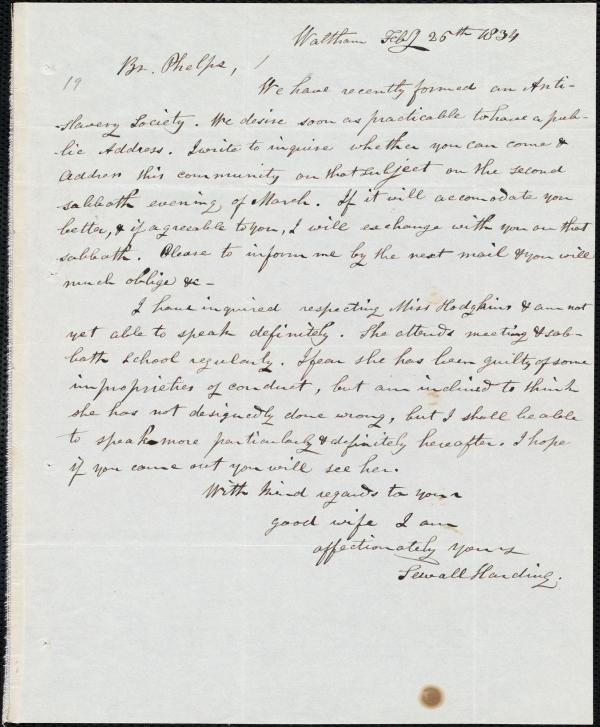 Waltham Feby 26th 1834
Br. Phelps,
19
We have recently formed an Anti-
slavery Society. We desire soon as practicable to have a pub-
lic Address. I write to inquire whether you can come &
address this community on that subject on the second
sabbath evening of March. If it will accomodate you
better, & if agreeable to you, I will exchange with you on that
sabbath. Please to inform me by the next mail & you will
much oblige &c-
I have inquired respecting Miss Hodgkins & am not
yet able to speak definitely. She attends meeting & sab-
bath School regularly. I fear she has been guilty of some
improprieties of conduct, but am inclined to think
she has not designedly done wrong, but I shall be able
to speak more particularly & definitely hereafter. I hope
if you come out you will see her.
With kind regards to your
good wife I am
affectionately yours
Sewall Harding.